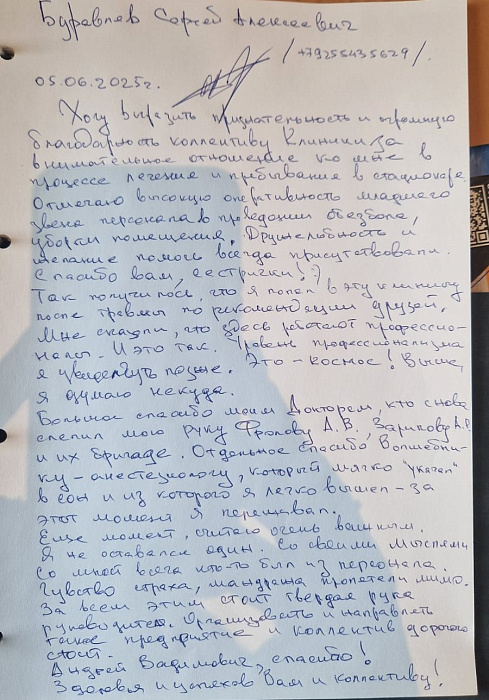 Буравлев Сергей Алексеевич
/ +79255435629 /.
05.06.2025г.
Хочу выразить признательность и огромную
благодарность коллективу Клиники за
внимательное отношение ко мне в
процессе лечения и пребывание в стационаре.
Отмечаю высокую оперативность младшего
звена персонала в проведении обезбола,
уборки помещения. Дружелюбность и
желание помочь всегда присутствовали.
Спасибо вам, сестрички! :)
Так получилось, что я попал в эту клинику
после травмы по рекомендации друзей.
Мне сказали, что здесь работают профессио-
налы. И это так. Уровень профессионализма
я увидел чуть позже. Это - космос! Выше,
я думаю некуда.
Большое спасибо моим Докторам, кто снова
слепил мою руку Фролову А.В, Зарипову А.Р.
и их бригаде. Отдельное спасибо Волшебни-
ку - анестезиологу, который мягко "укачал"
в сон и из которого я легко вышел - за
этот момент я переживал.
Еще момент, считаю очень важным.
Я не оставался один. Со своими мыслями
Со мной всегда кто-то был из персонала.
Чувство страха, мандража пролетели мимо.
За всем этим стоит твердая рука
руководителя. Организовать и направлять
такое предприятие и коллектив дорогого
стоит.
Андрей Вадимович, спасибо!
Здоровья и успехов Вам и коллективу!